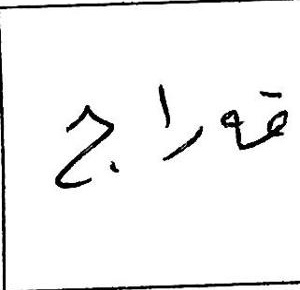 قوراج